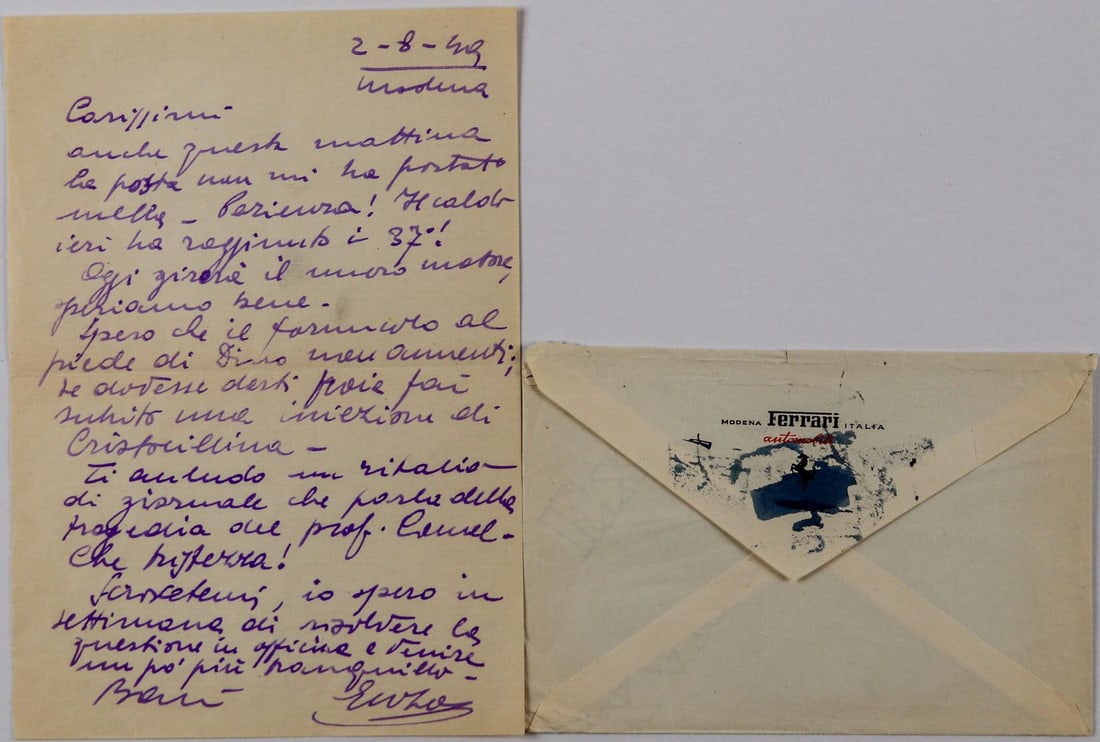 2-8-49
Modena
Carissimi
anche questa mattina
la posta non mi ha portato
nulla - Pazienza! Il caldo
ieri ha raggiunto i 37°!
Oggi girerà il nuovo motore,
speriamo bene -
Spero che il foruncolo al
piede di Dino non aumenti;
se dovesse darti noie fai
subito una iniezione di
Cristocillina -
Ti accludo un ritaglio
di giornale che parla della
tragedia del prof.
Che tristezza!
Scrivetemi, io spero in
settimana di risolvere la
questione in officina e venire
un po' più tranquillo -
Baci
Enzo
MODENA Ferrari ITALIA
automobili